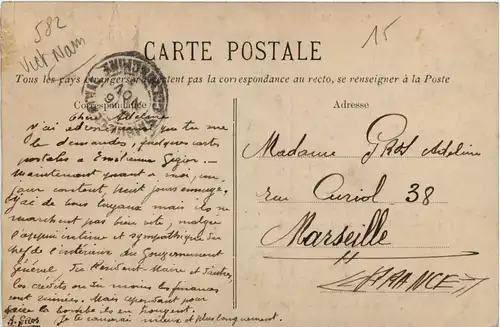 582
Viet Nam
15
CARTE POSTALE
Tous les pays étrangers n'acceptent pas la correspondance au recto, se renseigner à la Poste
Correspondance
Adresse
Chère Adeline
J'ai que tu me
le demandes, quelques cartes
postales à
Maintenant quant à moi, un
jour content, huit jours
J'ai de bons tuyaux mais ils ne
marchent pas bien vite, malgré
l'appui intime et sympathique du
chef de l'intérieur du Gouvernement
Général, du Résident Maire et
les crédits ou du moins les finances
sont ruinées. Mais cependant pour
ils en
A. Gros. Je te causerai mieux et plus longuement.
Madame GROS Adeline
rue Curiol 38
Marseille
FRANCE